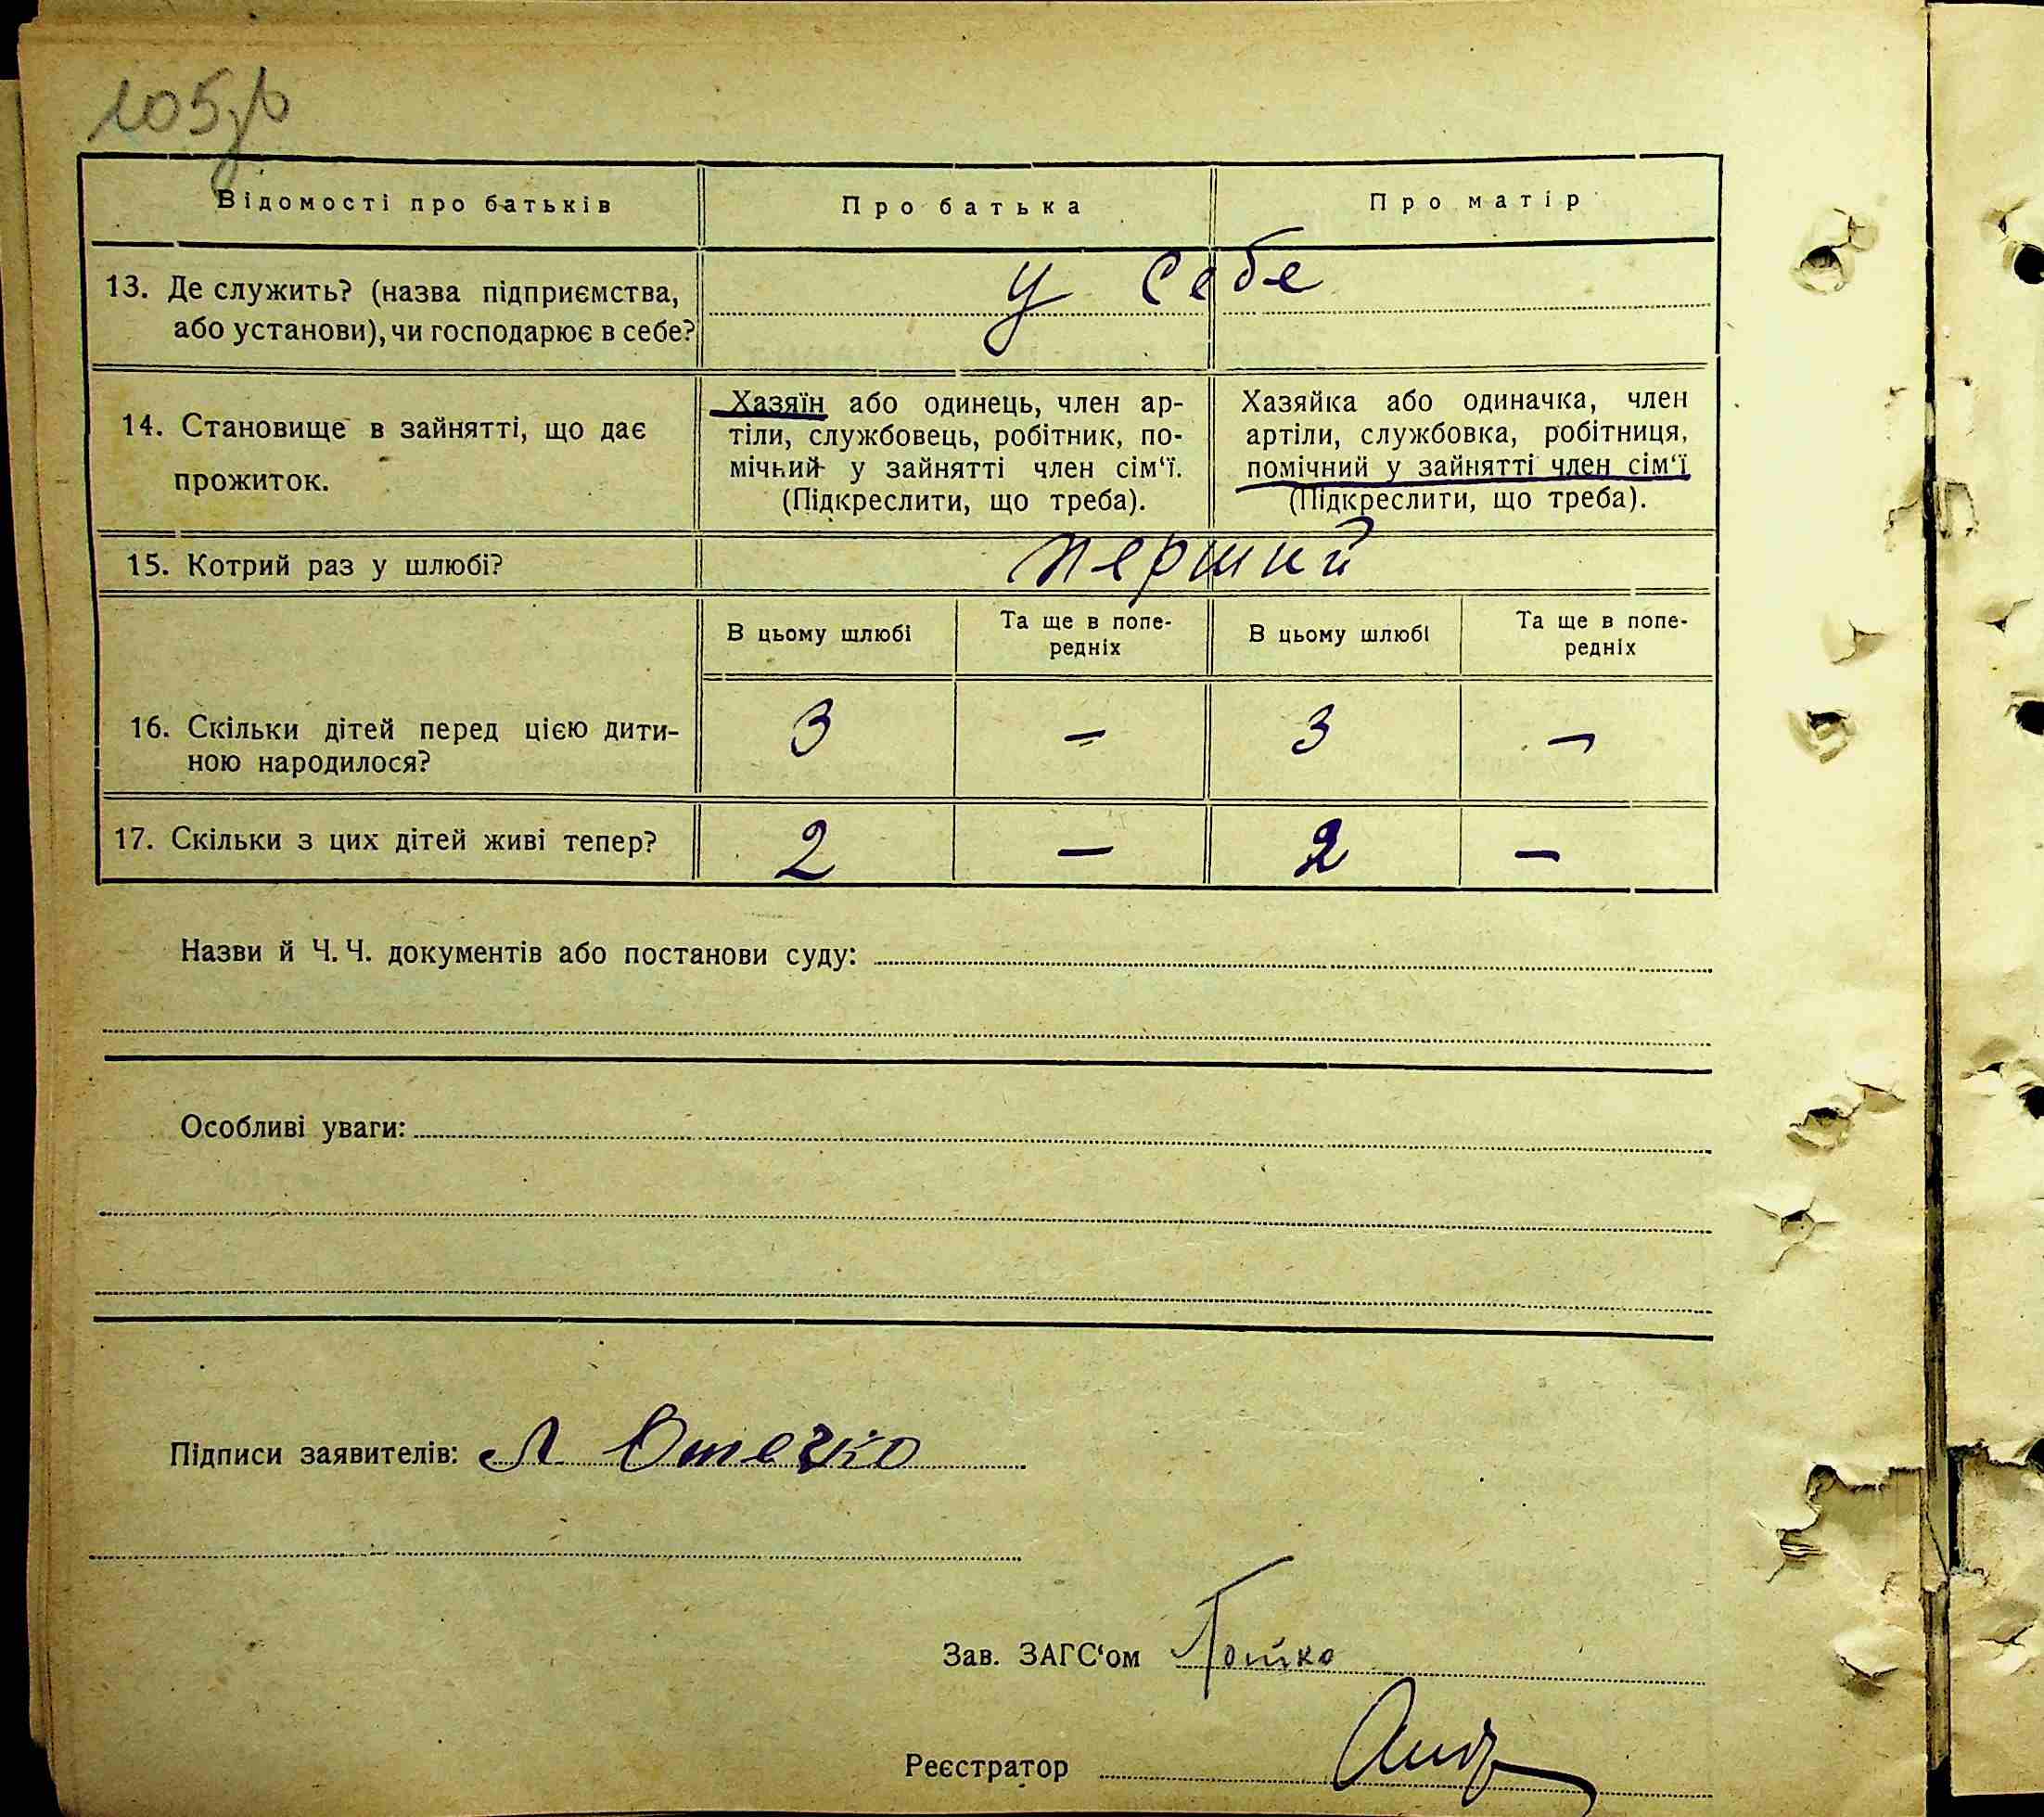 105зв
Відомості про батьків Про батька Про матір
13. Де служить? (назва підприємства, або установи), чи господарює в себе? у себе
14. Становище в зайнятті, що дає прожиток.
Хазяїн або одинець, член ар-
тіли, службовець, робітник, по-
мічний у зайнятті член сім‘ї.
(Підкреслити, що треба).
Хазяйка або одиначка, член
артіли, службовка, робітниця,
помічний у зайнятті член сім‘ї
(Підкреслити, що треба).
15. Котрий раз у шлюбі? перший
В цьому шлюбі Та ще в попе-
редніх
В цьому шлюбі Та ще в попе-
редніх
16. Скільки дітей перед цією дити-
ною народилося? 3 — 3 —
17. Скільки з цих дітей живі тепер? 2 — 2 —
Назви й Ч. Ч. документів або постанови суду:
Особливі уваги:
Підписи заявителів: Л Отечко
Зав. ЗАГС‘ом Бойко
Реєстратор